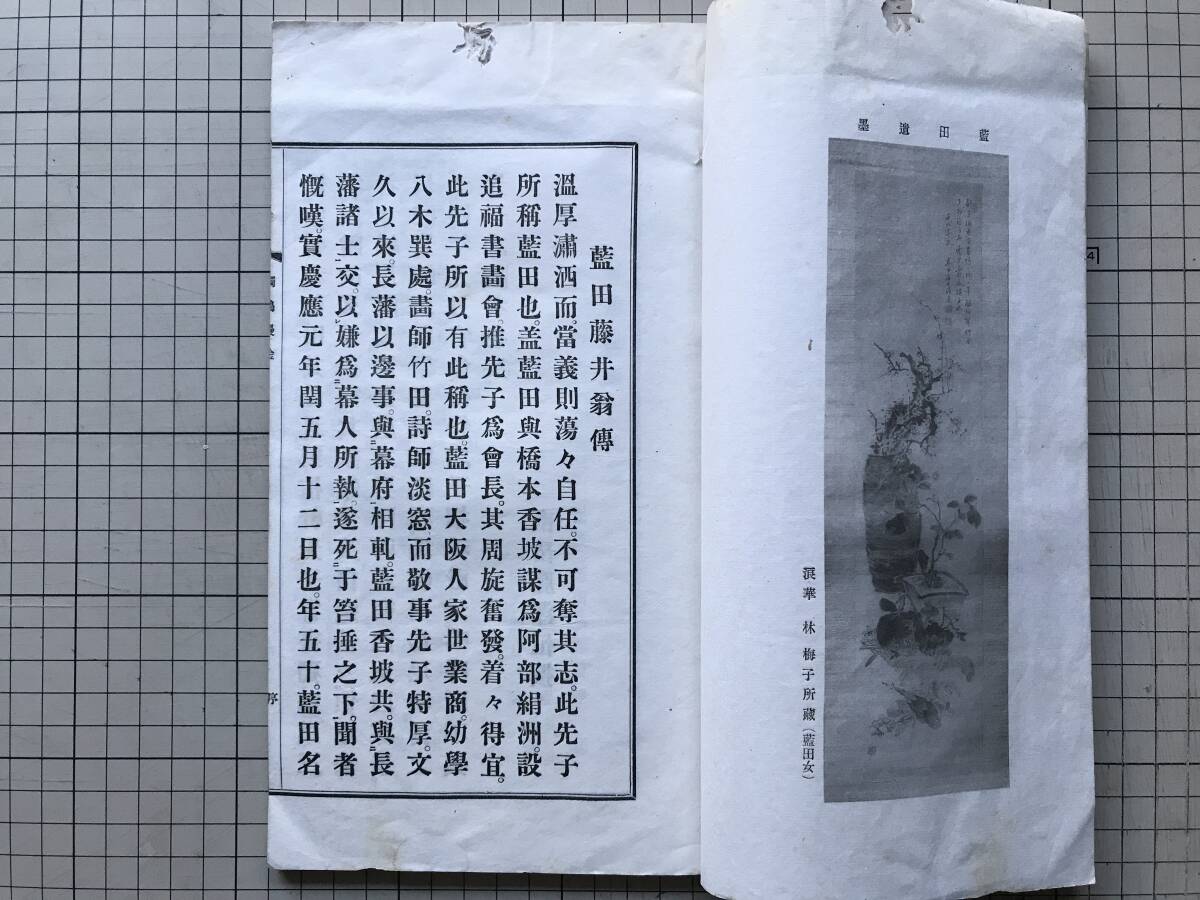 藍田遺墨
浪華 林 梅子所藏(藍田女)
藍田藤井翁傳
溫厚瀟洒而當義則蕩々自任。不可奪其志。此先子
所稱藍田也。盖藍田與橋本香坡謀爲阿部絹洲。設
追福書畫會。推先子爲會長。其周旋奮發。着々得宜。
此先子所以有此稱也。藍田大阪人家世業商。幼學
八木巽處。畫師竹田。詩師淡窓而敬事先子特厚。文
久以來。長藩以邊事。與幕府相軋。藍田香坡共與長
藩諸士交。以嫌爲幕人所執。遂死于笞捶之下。聞者
慨嘆。實慶應元年閏五月十二日也。年五十。藍田名
序